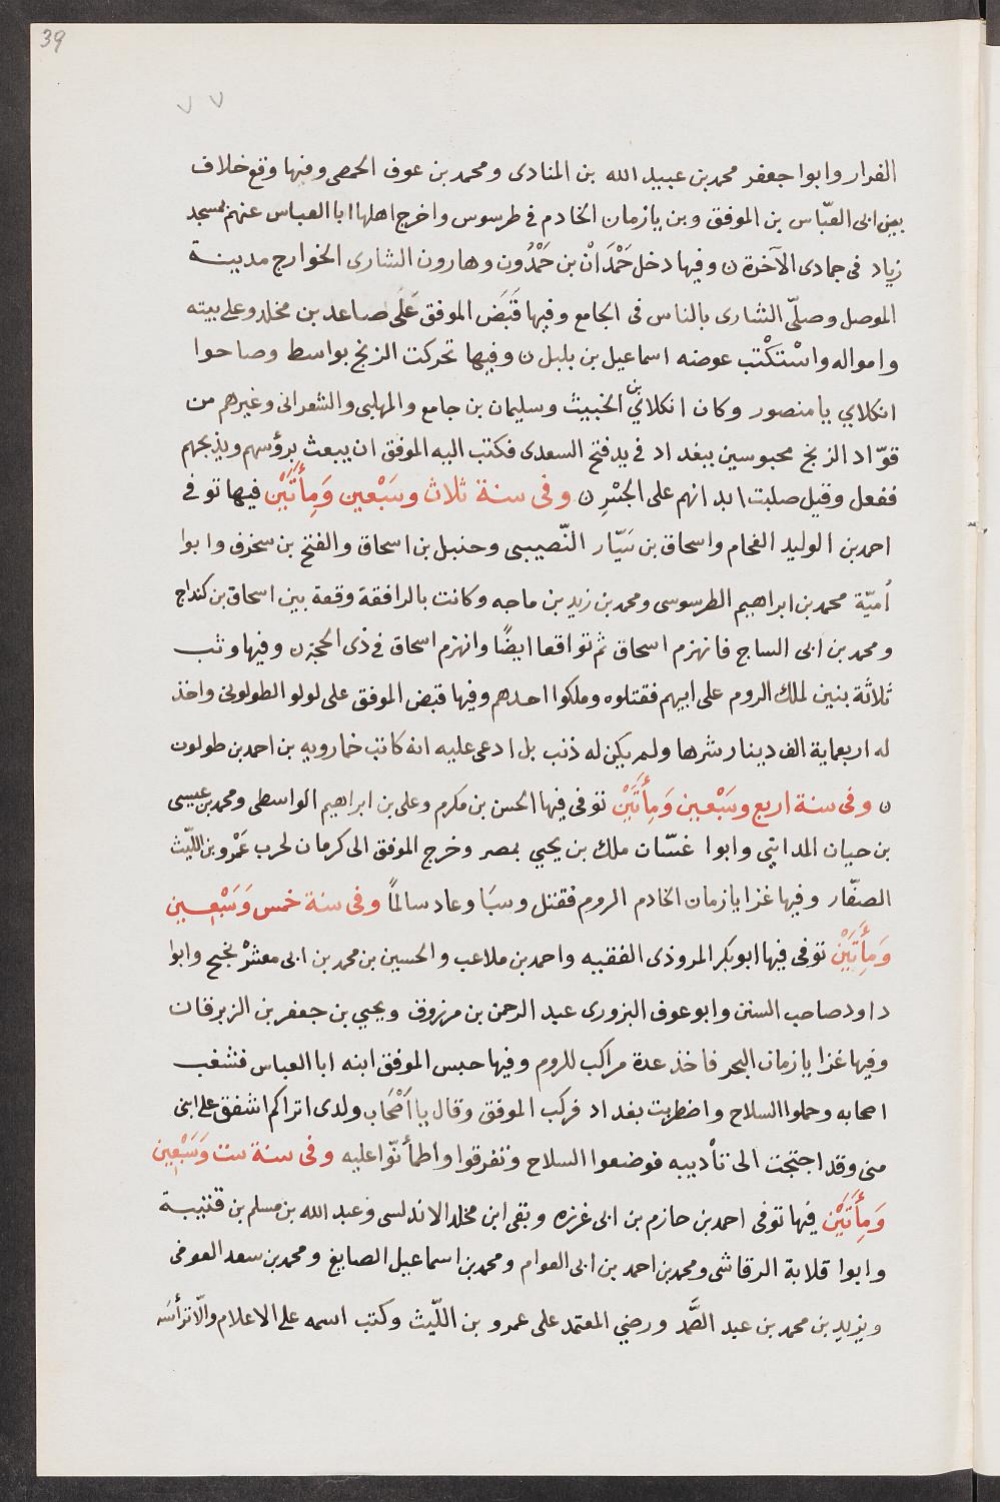 39
٧ ٧
الفرار وابوا جعفر محمد بن عبيد الله بن المنادى ومحمد بن عوف الحمصى وفيها وقع خلاف
بين ابى العبّاس بن الموفق وبن يازمان الخادم فى طرسوس واخرج اهلها ابا العباس عنهم بمسجد
زياد فى جمادى الآخرة ن وفيها دخل حَمْدَانْ بن حَمْدُون وهارون الشارى الخوارج مدينة
الموصل وصلّى الشارى بالناس فى الجامع وفيها قَبَض الموفق عَلَى صاعد بن مخلد وعلى بيته
وامواله واسْتكْتب عوضه اسماعيل بن بلبل ن وفيها تحركت الزنج بواسط وصاحوا
انكلاي يا منصور وكان انكلائى بن الخبيث وسليمان بن جامع والمهلبى والشعرانى وغيرهم من
قوّاد الزنج محبوسين ببغداد فى يد فتح السعدى فكتب اليه الموفق ان يبعث برؤسهم ويذبحهم
ففعل وقيل صلبت ابدانهم على الجسْرِ ن وفى سنة ثلاث وسَبْعين وَمِأَتَيْن فيها توفى
احمد بن الوليد الفحام واسحاق بن سَيّار النّصيبى وحنبل بن اسحاق والفتح بن سخرف وابوا
أميّة محمد بن ابراهيم الطرسوسى ومحمد بن زيد بن ماجه وكانت بالرافقة وقعة بين اسحاق بن كنداج
ومحمد بن ابى الساج فانهزم اسحاق ثم تواقعا ايضًا وانهزم اسحاق فى ذى الحجة ن وفيها وثب
ثلاثة بنين لملك الروم على ابيهم فقتلوه وملكوا احدهم وفيها قبض الموفق على لولو الطولونى واخذ
له اربعماية الف دينار شرها ولم يكن له ذنب بل ادعى عليه انه كاتب خمارويه بن احمد بن طولون
ن وفى سنة اربع وسَبْعين وَمِأَتَيْن توفى فيها الحسن بن مكرم وعلى بن ابراهيم الواسطى ومحمد بن عيسى
بن حيان المدايني وابوا غسّان ملك بن يحيي بمصر وخرج الموفق الى كرمان لحرب عَمْرو بن اللّيث
الصفّار وفيها غزا يازمان الخادم الروم فقتل وسبَا وعاد سالماً وفى سنة خمس وَسَبْعين
وَمِأَتَيْن توفى فيها ابو بكر المروذى الفقيه واحمد بن ملاعب والحسين بن محمد بن ابى معشرْ نجيح وابوا
داود صاحب السنن وابو عوف البزورى عبد الرحمن بن مرزوق ويحيي بن جعفر بن الزبرقان
وفيها غزا يازمان البحر فاخذ عدة مراكب للروم وفيها حبس الموفق ابنه ابا العباس فشغب
اصحابه وحملوا السلاح واضطربت بغداد فركب الموفق وقال يا اَصْحَاب ولدى اتراكم اشفق على ابنى
منى وقد احتجت الى تأديبه فوضعوا السلاح وتفرقوا وأطمأنّوا عليه وفى سنة ست وَسَبْعِين
وَمِأَتَيْن فيها توفى احمد بن حازم بن ابى غرزه وبقى ابن مخلد الاندلسى وعبد الله بن مسلم بن قتيبة
وابوا قلابة الرقاشى ومحمد بن احمد بن ابى العوام ومحمد بن اسماعيل الصايغ ومحمد بن سعد العوفى
ويزيد بن محمد بن عبد الصَّمد ورضي المعتمد على عمرو بن اللّيث وكتب اسمه على الاعلام والاترأسه